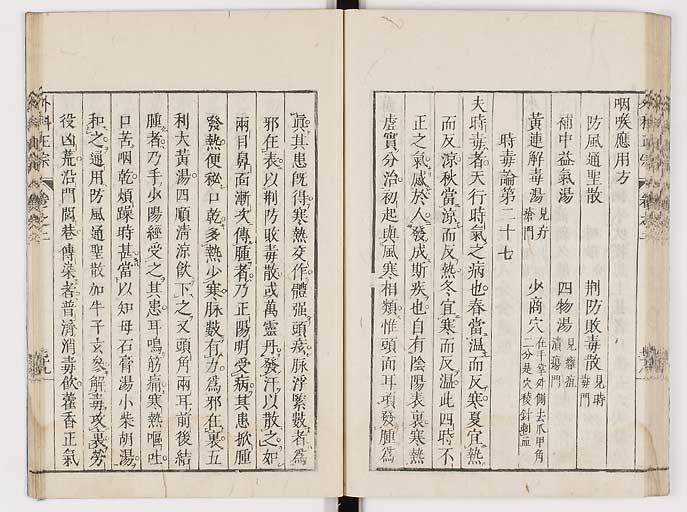 咽喉應用方
防風通聖散　荊防敗毒散 見時毒門
補中益氣湯　四物湯 見癰疽潰瘍門
黃連解毒湯 見疔瘡門　少商穴 在手掌外側去爪甲角二分是穴稜針刺血
時毒論第二十七
夫時毒者天行時氣之病也春當温而反寒夏宜熱
而反涼秋當涼而反熱冬宜寒而反温此四時不
正之氣感於人發成斯疾也自有陰陽表裏寒熱
虛實分治初起與風寒相類惟頭面耳項發腫爲
真其患既得寒熱交作體強頭疼脉浮緊數者爲
邪在表以荊防敗毒散或萬靈丹發汗以散之如
兩目鼻面漸次傳腫者乃正陽明受病其患掀腫
發熱便秘口乾多熱少寒脉數有力爲邪在裏五
利大黃湯四順清涼飲下之又頭角兩耳前後結
腫者乃手少陽經受之其患耳鳴筋痛寒熱嘔吐
口苦咽乾煩躁時甚當以知母石膏湯小柴胡湯
和之通用防風通聖散加牛子玄參解毒攻裏勞
役凶荒沿門閭巷傳染者普濟消毒飲藿香正氣
外科正宗